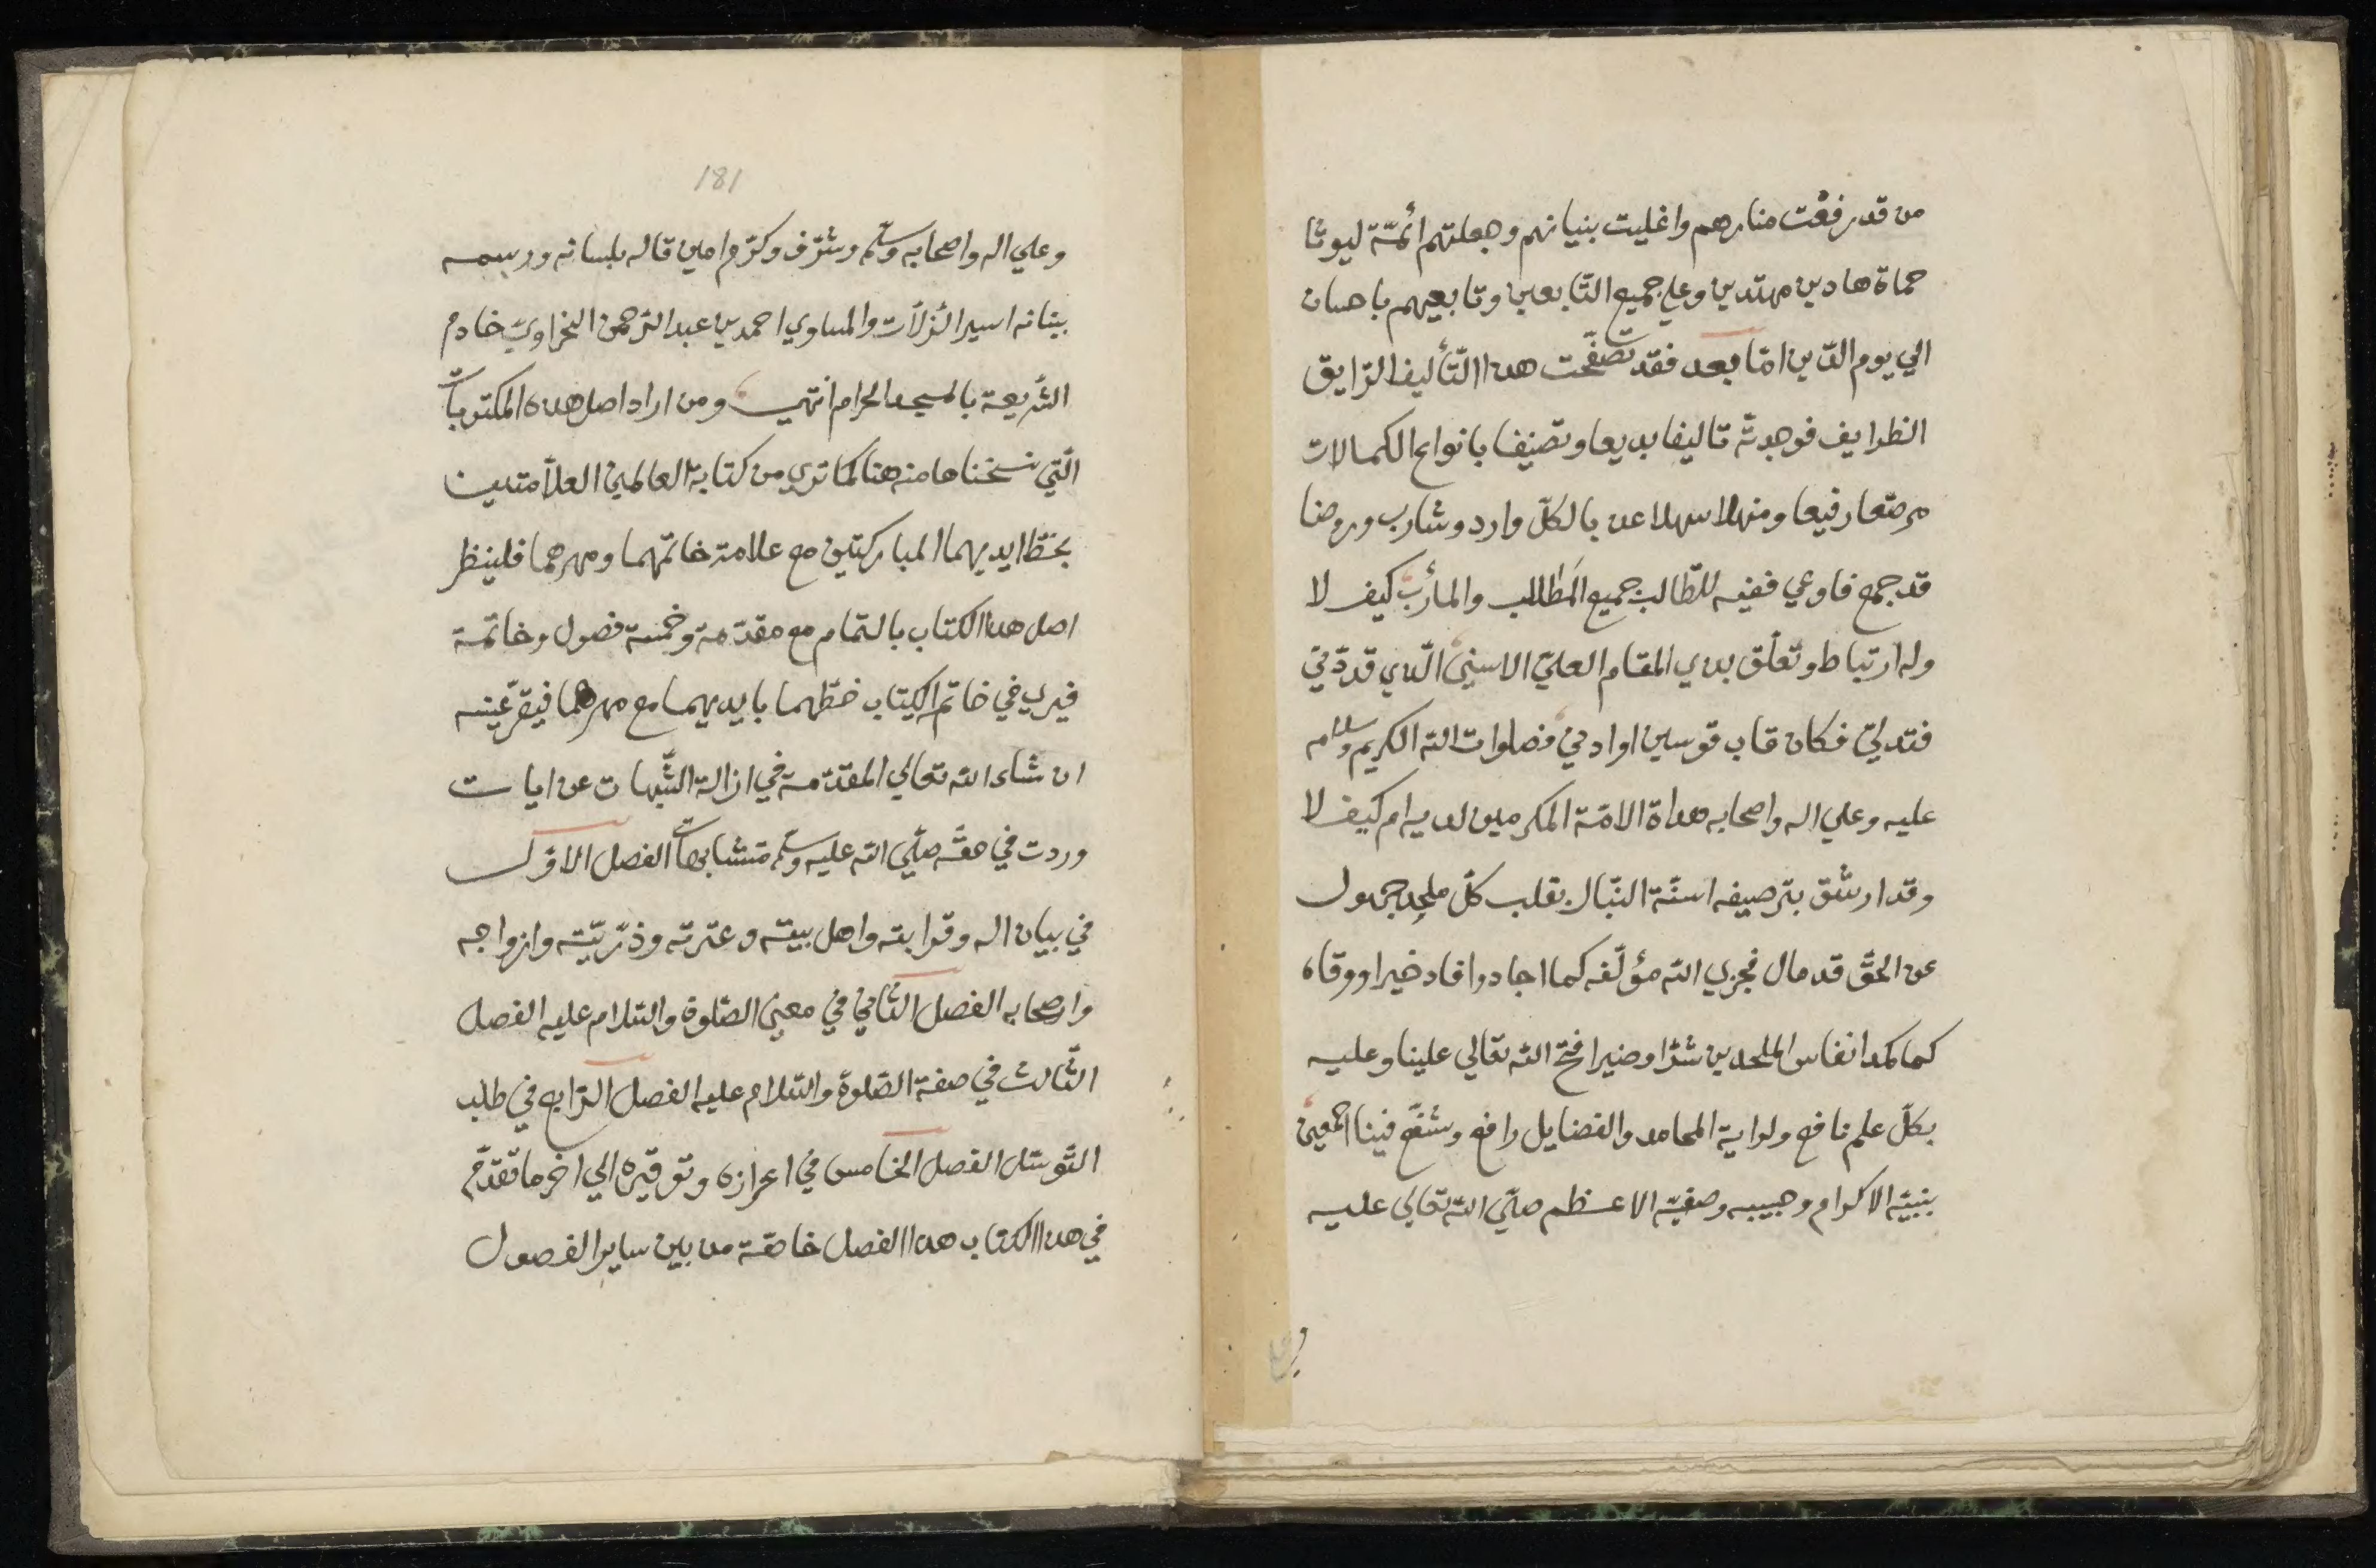 من قد رفعت منارهم واعليت بنيانهم وجعلتهم أئمّة ليوثا
حماة هادين مهتدين وعلي جميع التّابعين وتابعيهم باحسان
الي يوم الدّين امّا بعد فقد تصفّحت هذا التّأليف الرّايق
الظرايف فوجدته تاليفا بديعا وتصنيفا بانواع الكمالات
مرصّعا رفيعا ومنهلا سهلا عذبا لكلّ وارد وشارب وروضا
قد جمع فاوعي ففيه للطّالب جميع المَطالب والمأرب كيف لا
وله ارتباط وتعلّق بذي المقام العليّ الاسنيّ الّذي قد دّني
فتدليّ فكان قاب قوسين او ادني فصلوات الله الكريم وسلامه
عليه وعلي اله واصحابه هداة الامّة المكرمين لديه ام كيف لا
وقد ارشق بترصيفه اسنّة النّبال بقلب كلّ ملحِد جهول
عن الحقّ قد مال فجزي الله مؤلّفه كما اجاد وافاد خيرا ووقاه
كما كمد انفاس الملحدين شرّا وضيرا فتح الله تعالي علينا وعليه
بكلّ علم نافع ولراية المحامد والفضايل رافع وشفّع فينا اجمعين
بنبيّه الاكرام وحبيبه وصفيّه الاعظم صلّي الله تعالي عليه
181
وعلي اله واصحابه وسلّم وشرّف وكرّم امين قاله بلسانه ورسمه
ببنانه اسير الزّلّات والمساوي احمد بن عبد الرّحمن النحراويّ خادم
الشّريعة بالمسجد الحرام انتهي ومن اراد اصل هذه المكتوبات
الّتي نسخناها منه هنا كما تري من كتابة العالمين العلاّمتين
بخطّ ايديهما المباركتين مع علامة خاتمهما ومهرهما فلينظر
اصل هذا الكتاب بالتمام مع مقدّمة وخمسة فصول وخاتمة
فيري في خاتم الكتاب خطّهما بايديهما مع مهرهما فيقرّ عينه
ان شاء الله تعالي المقدّمة في ازالة الشّبهات عن ايات
وردت في حقّه صلّي الله عليه وسلّم متشابهات الفصل الاوّل
في بيان اله وقرابته واهل بيته وعترته وذرّيّته وازواجه
واصحابه الفصل الثّاني في معني الصّلوة والسّلام عليه الفصل
الثّالث في صفة الصّلوة والسّلام عليه الفصل الرّابع في طلب
التّوسّل الفصل الخامس في اعزازه وتوقيره الي اخر ما تقدّم
في هذا الكتاب هذا الفصل خاصّة من بين ساير الفصول